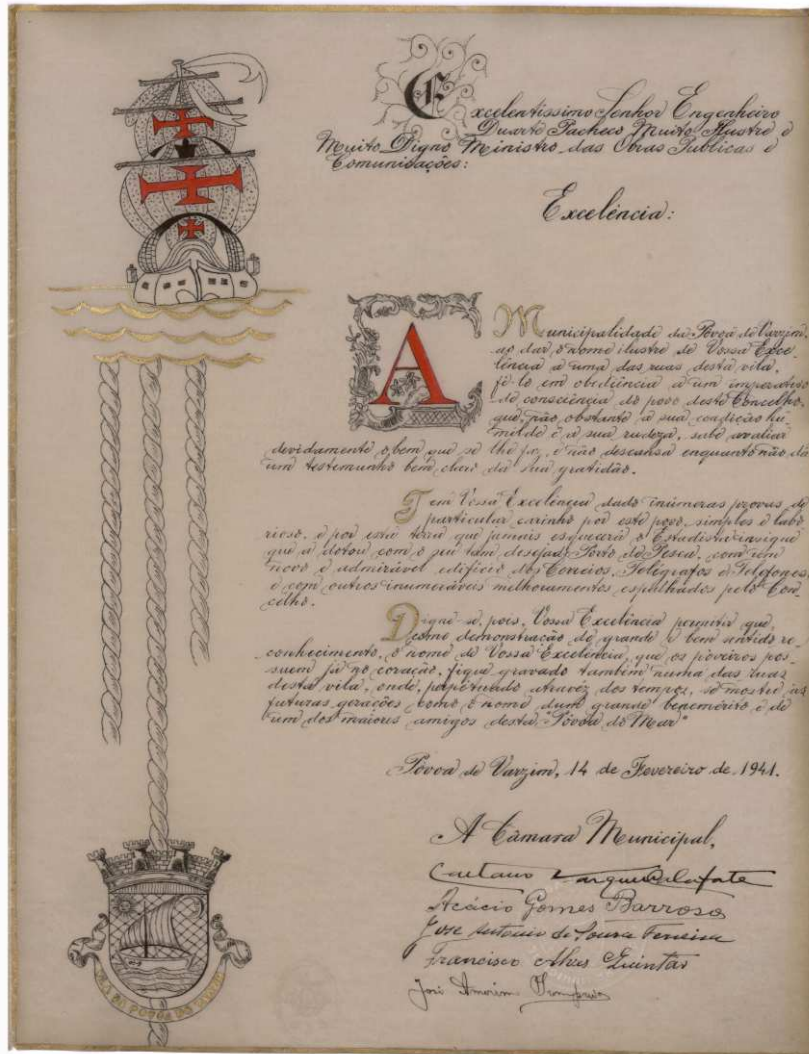 Excelentissimo Senhor Engenheiro
Duarte Pacheco Muito Ilustre e
Muito Digno Ministro das Obras Publicas e
Comunicações:
Excelência:
A Municipalidade da Póvoa de Varzim,
ao dar o nome ilustre de Vossa Exce-
lência a uma das ruas desta vila,
fê-lo em obediência a um imperativo
de consciência do povo deste Concelho,
que, não obstante a sua condição hu-
milde e a sua rudeza, sabe avaliar
devidamente o bem que se lhe faz, e não descansa enquanto não dá
um testemunho bem claro da sua gratidão.
Tem Vossa Excelência dado inúmeras provas de
particular carinho por este povo simples e labo-
rioso, e por esta terra que jamais esquecerá o Estadista insigne
que a dotou com o seu tam desejado Porto de Pesca, com um
novo e admirável edifício dos Correios, Telégrafos e Telefones,
e com outros inumeráveis melhoramentos espalhados pelo Con-
celho.
Digne-se, pois, Vossa Excelência permitir que,
como demonstração de grande e bem sentido re-
conhecimento, o nome de Vossa Excelência, que os poveiros pos-
suem já no coração, fique gravado também numa das ruas
desta vila, onde, perpetuado atravez dos tempos, se mostre às
futuras gerações como o nome dum grande benemérito e de
um dos maiores amigos desta "Póvoa do Mar"
Póvoa de Varzim, 14 de Fevereiro de 1941.
A Câmara Municipal,
Caetano
Acácio Gomes Barroso
José António de Sousa Ferreira
Francisco Alves Quintas
José Amorim
VILA DA PÓVOA DE VARZIM